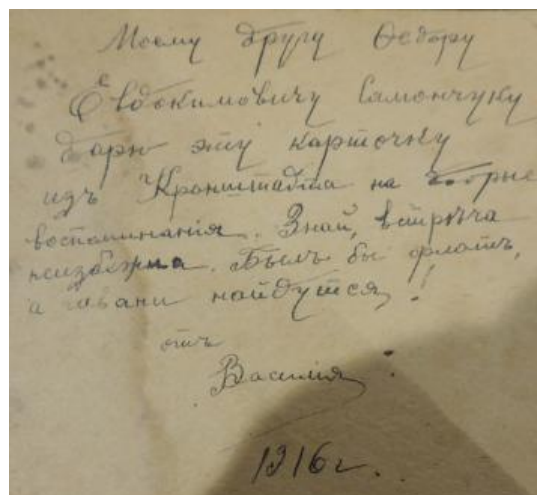 Моему другу Ѳедору
Евдокимовичу Самончуку
дарю эту карточку
изъ Кронштадта на добрые
воспоминанія. Знай, встрѣча
неизбѣжна. Былъ бы флотъ,
а Ивани найдутся!
отъ
Василія
1916 г.